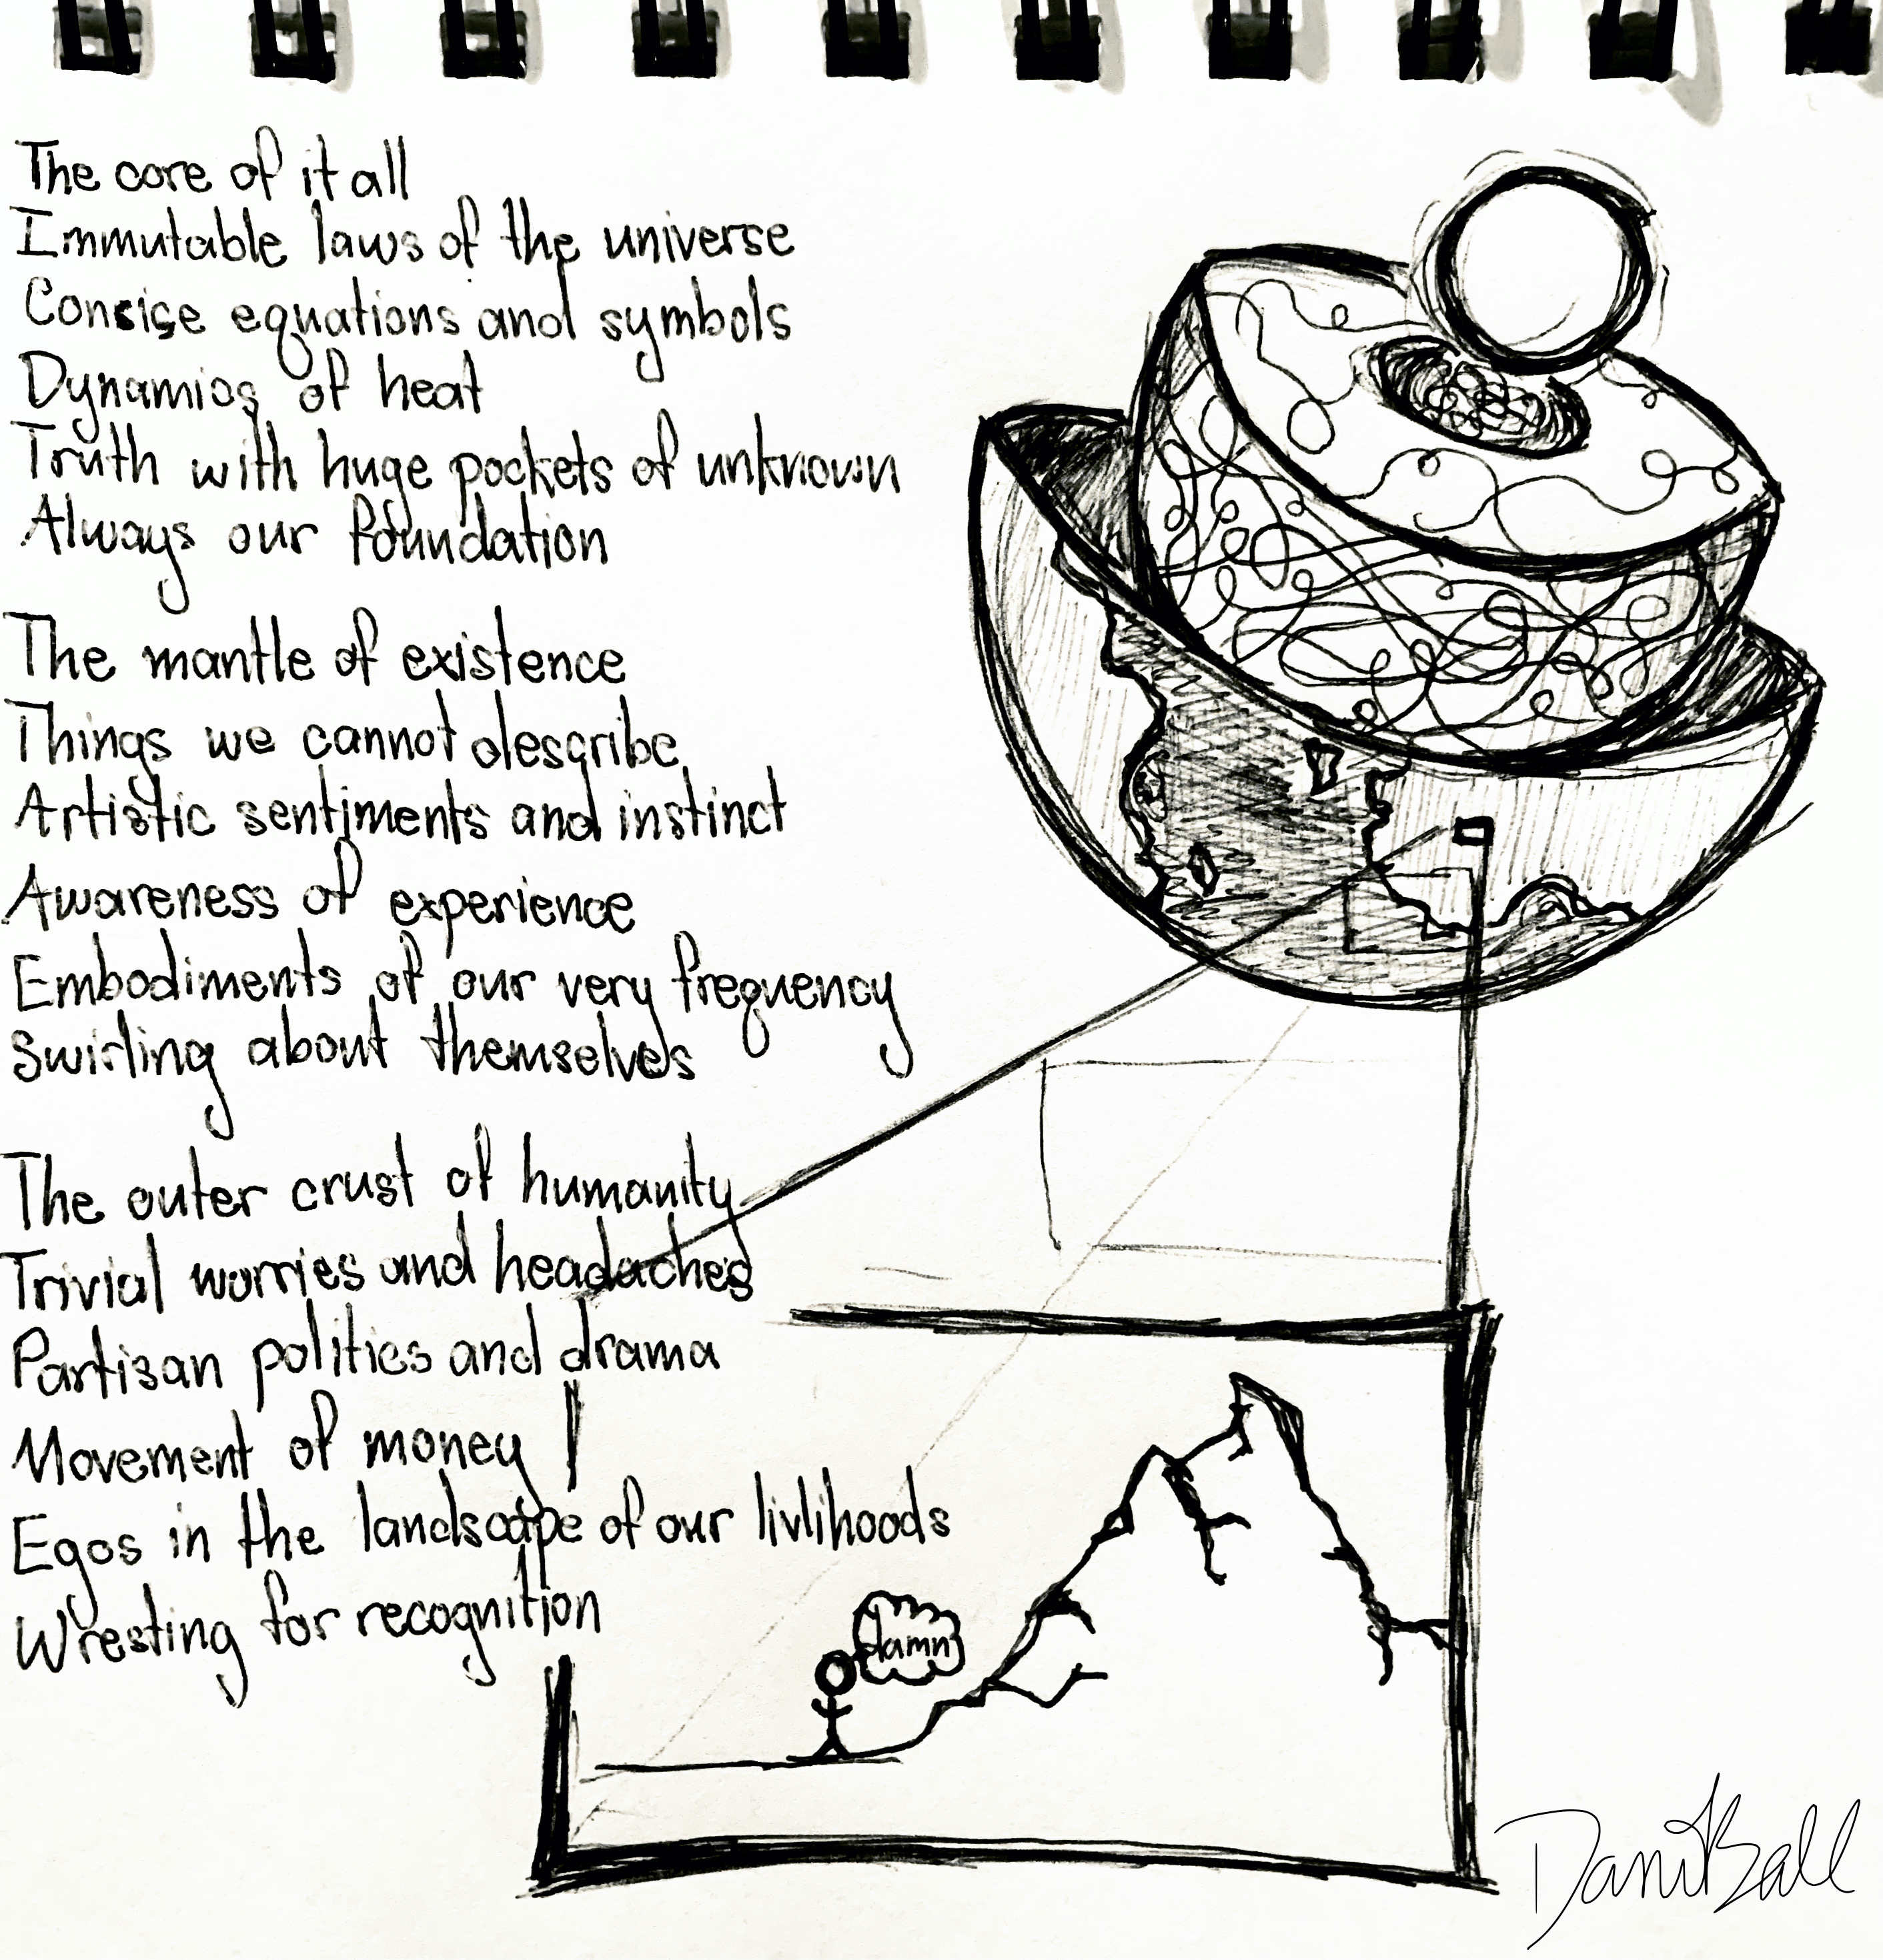 The core of it all
Immutable laws of the universe
Concise equations and symbols
Dynamics of heat
Truth with huge pockets of unknown
Always our foundation
The mantle of existence
Things we cannot describe
Artistic sentiments and instinct
Awareness of experience
Embodiments of our very frequency
Swirling about themselves
The outer crust of humanity
Trivial worries and headaches
Partisan politics and drama
Movement of money
Egos in the landscape of our livlihoods
Wresting for recognition
damn
Dani Ball